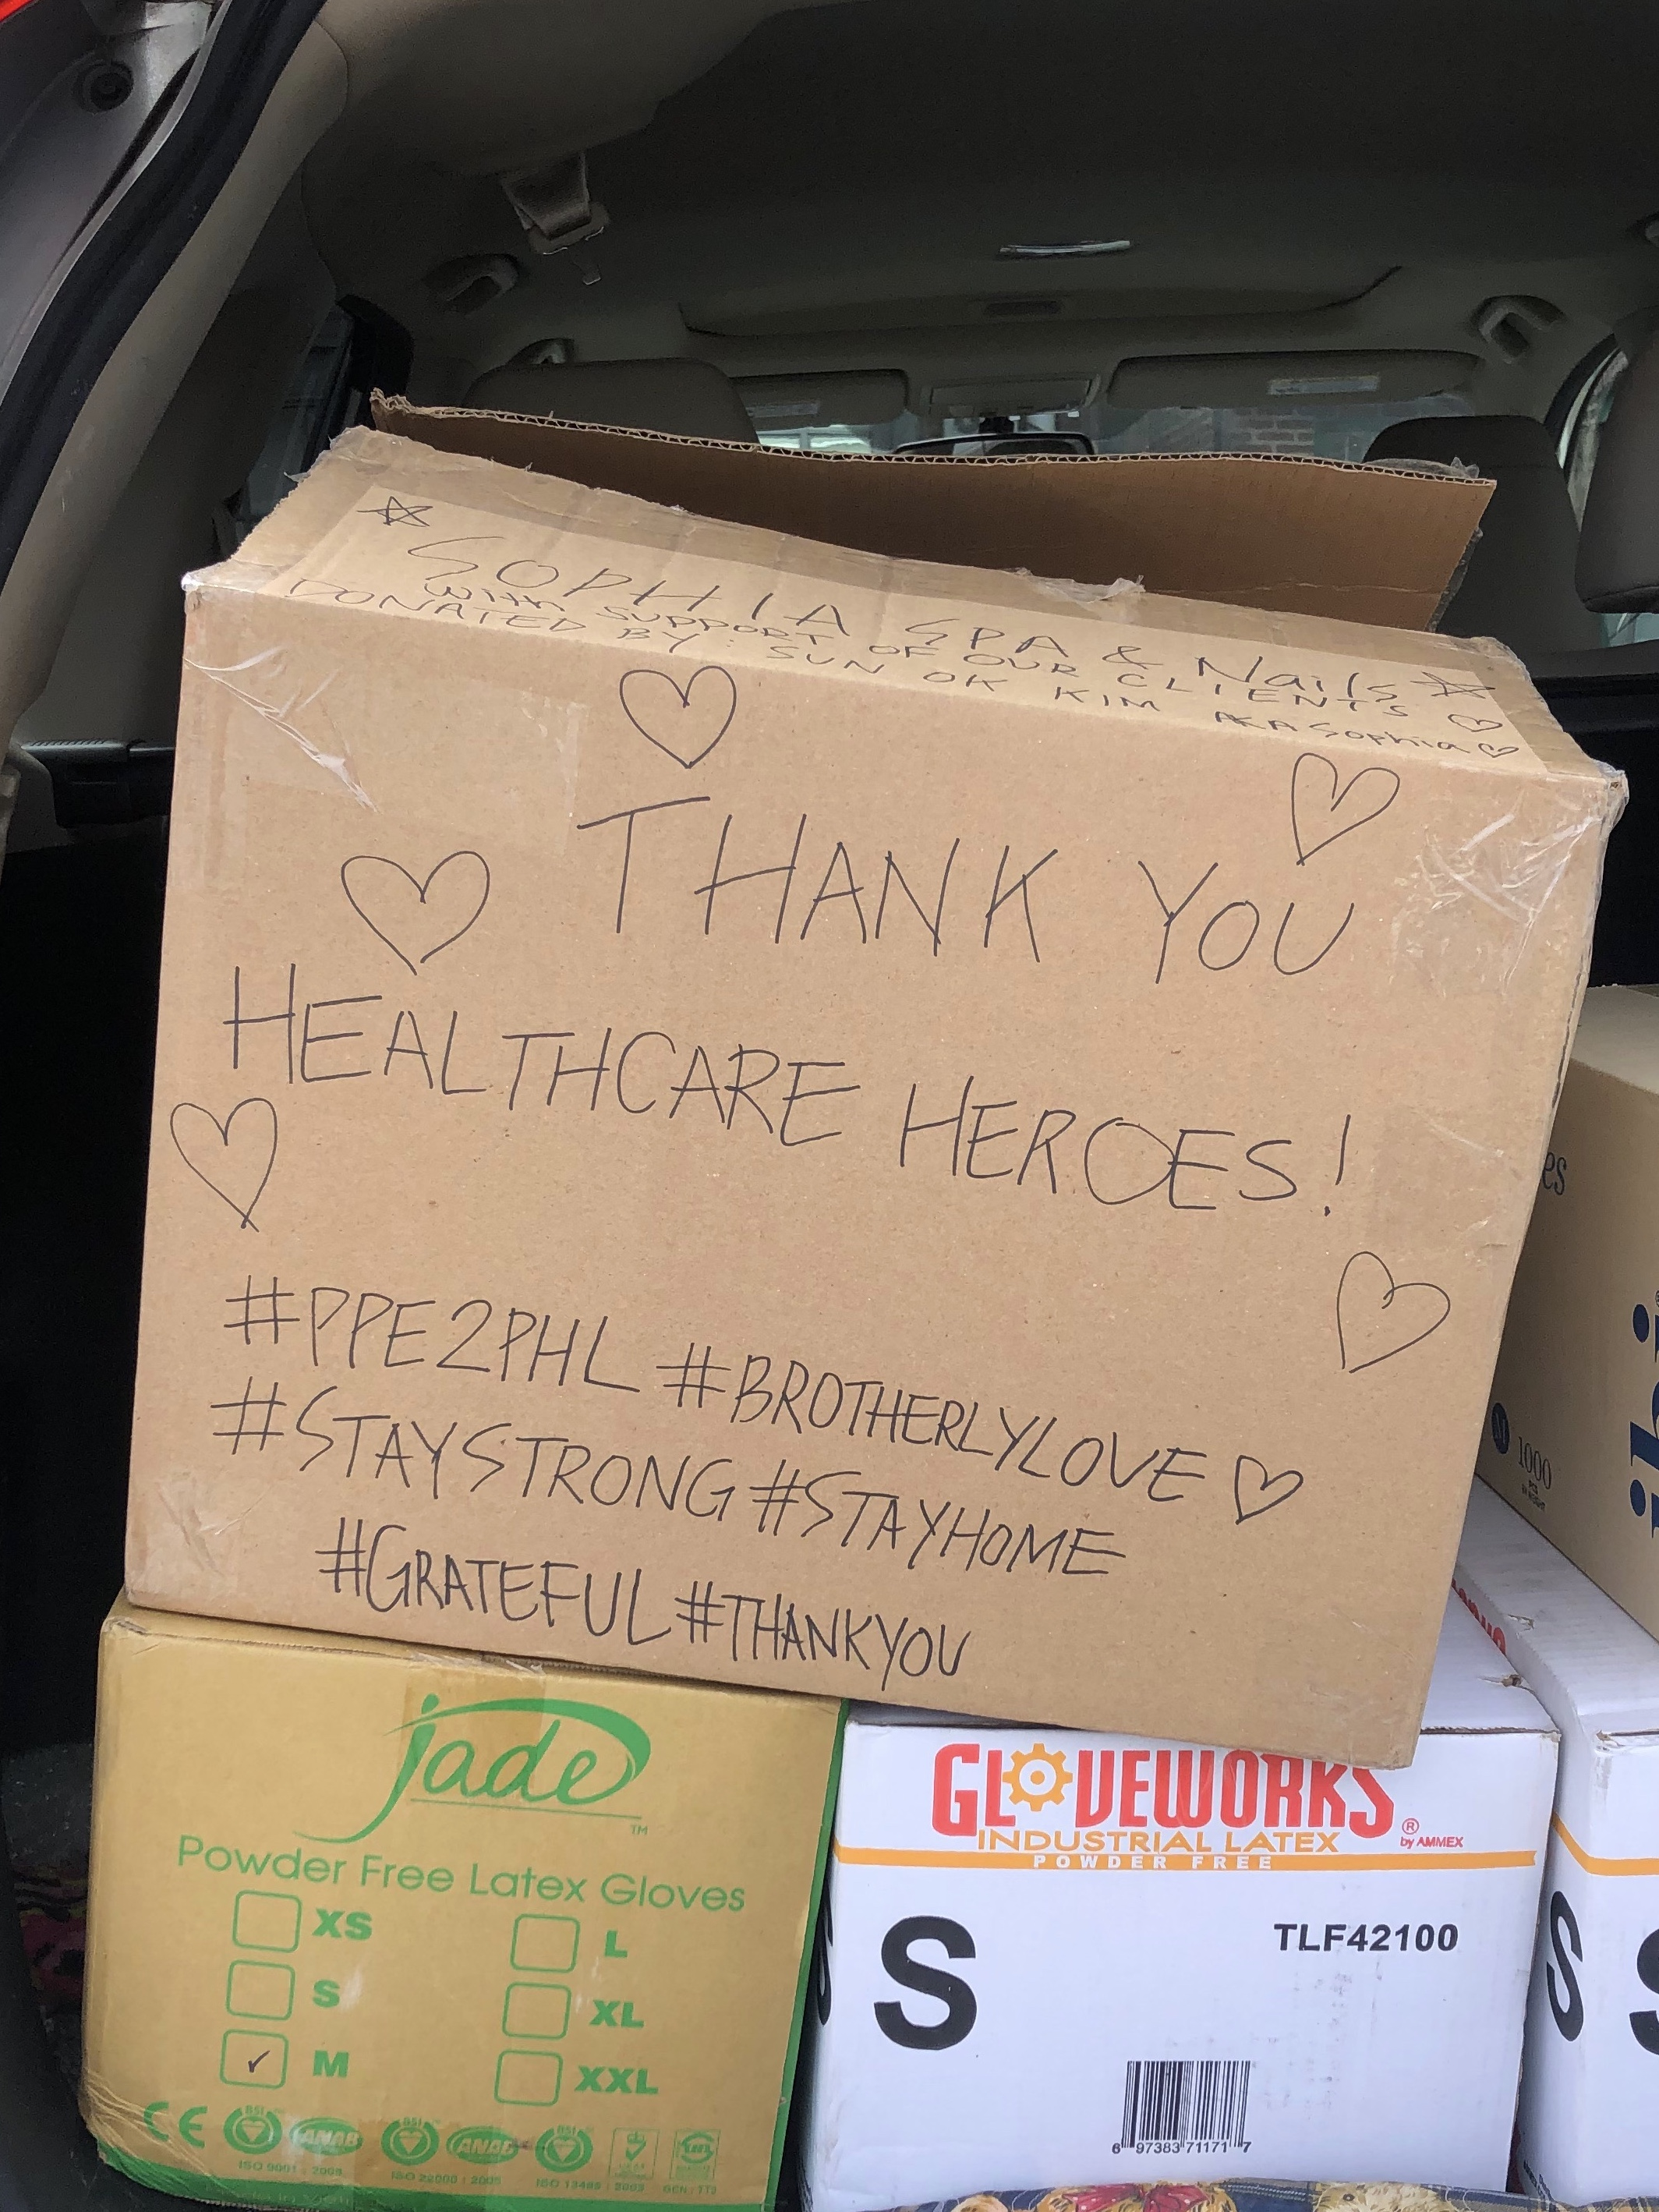 SOPHIA SPA & Nails
WITH SUPPORT OF OUR CLIENTS
DONATED BY: SUN OK KIM AKA Sophia
THANK YOU
HEALTHCARE HEROES!
#PPE2PHL #BROTHERLYLOVE
#STAYSTRONG #STAYHOME
#GRATEFUL #THANKYOU
es
M 1000
jade™
Powder Free Latex Gloves
XS
L
S
XL
✓ M
XXL
CE BSI ANAB BSI ANAB BSI
ISO 9001 : 2008 ISO 22000 : 2005 ISO 13485 : 2003
GLOVEWORKS®
by AMMEX
INDUSTRIAL LATEX
POWDER FREE
S
TLF42100
6 97383 71171 7
S
S